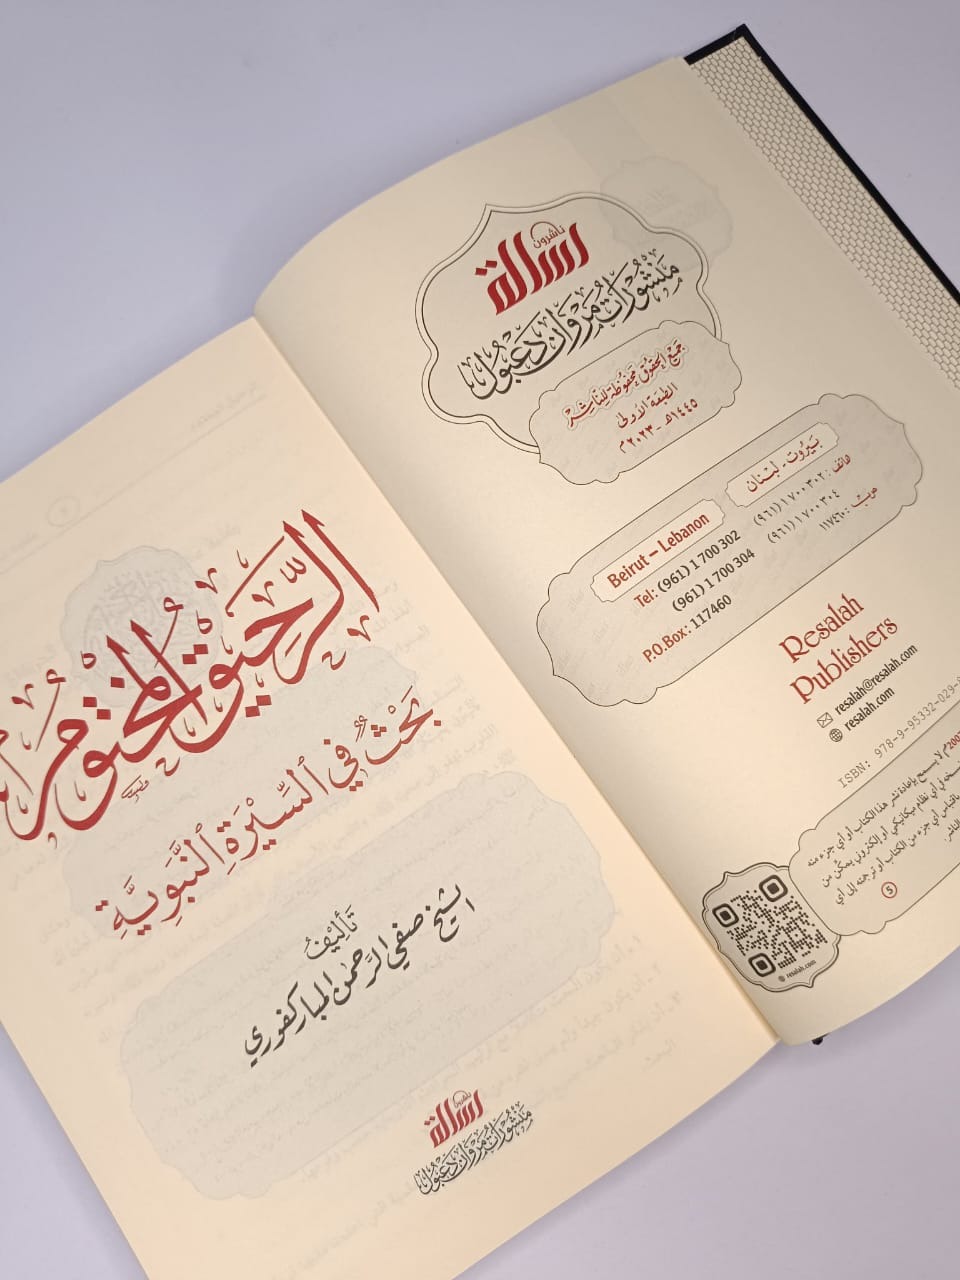 ناشرون
رسالة
منشورات مروان دعبول
جميع الحقوق محفوظة للناشر
الطبعة الأولى
١٤٤٥هـ - ٢٠٢٣م
بيروت - لبنان
هاتف: ٧٠٠٣٠٢ ١ (٩٦١)
٧٠٠٣٠٤ ١ (٩٦١)
ص.ب: ١١٧٤٦٠
Beirut – Lebanon
Tel: (961) 1 700 302
(961) 1 700 304
P.O.Box: 117460
Resalah
Publishers
resalah@resalah.com
resalah.com
ISBN: 978-9-95332-029-
م لا يسمح بإعادة نشر هذا الكتاب أو أي جزء منه
في أي نظام ميكانيكي أو إلكتروني يمكن من
اقتباس أي جزء من الكتاب أو ترجمته إلى أي
الناشر.
5
resalah.com
الرحيق المختوم
بَحْثٌ فِي السِّيْرَةِ النَّبَوِيَّةِ
تَأليْفُ
الشيخ صفي الرحمن المباركفوري
ناشرون
رسالة
منشورات مروان دعبول